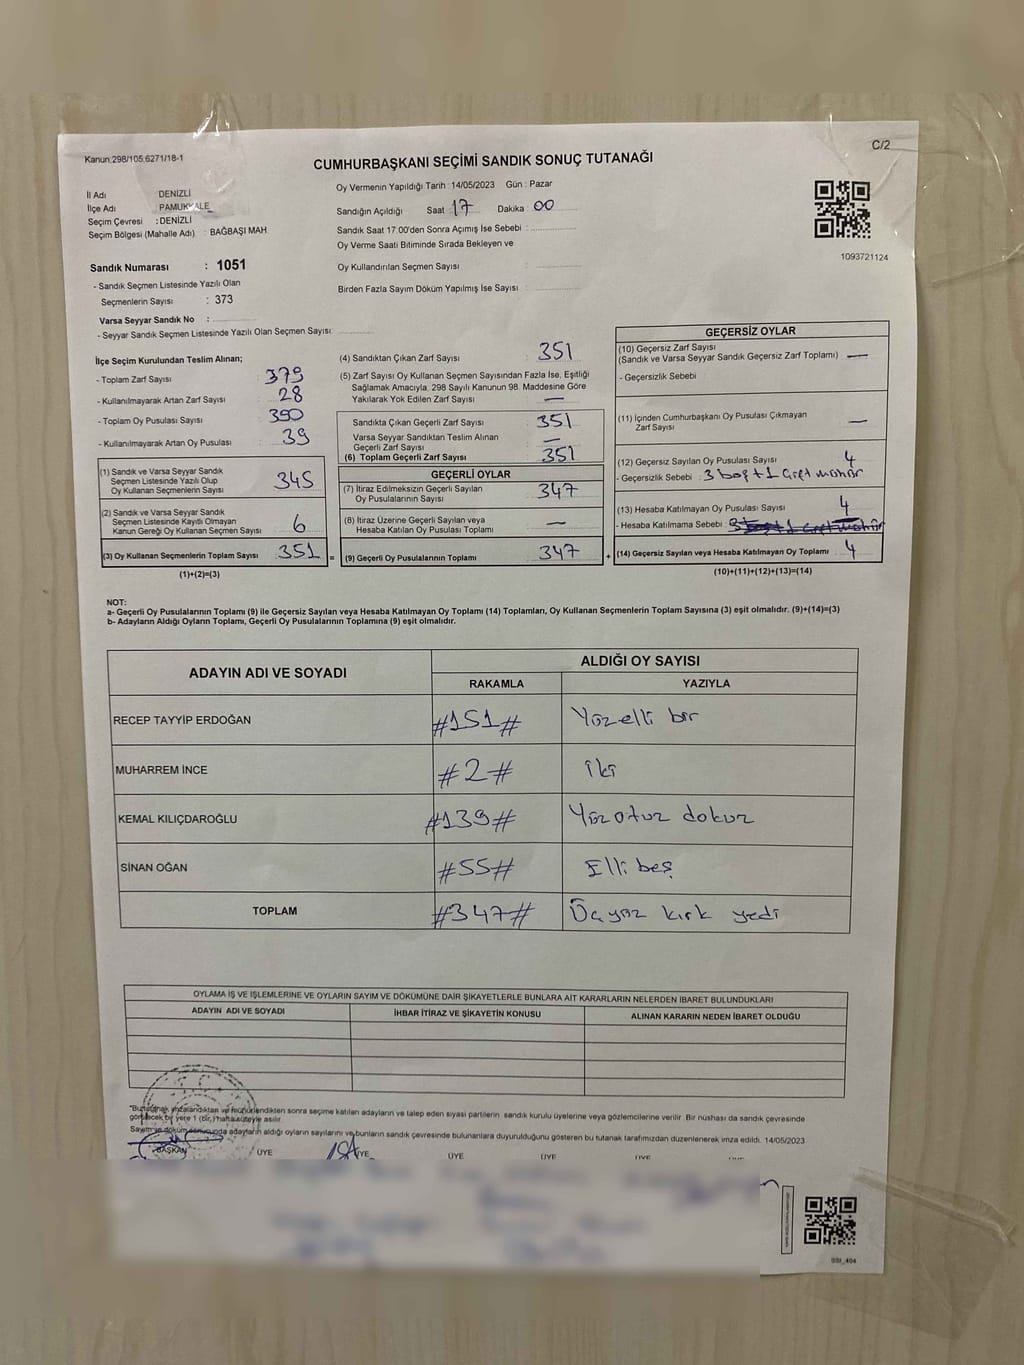 Kanun:298/105;6271/18-1
C/2
CUMHURBAŞKANI SEÇİMİ SANDIK SONUÇ TUTANAĞI
İl Adı DENİZLİ
İlçe Adı PAMUKKALE
Seçim Çevresi : DENİZLİ
Seçim Bölgesi (Mahalle Adı) : BAĞBAŞI MAH.
Oy Vermenin Yapıldığı Tarih : 14/05/2023 Gün : Pazar
Sandığın Açıldığı Saat 17 Dakika : 00
Sandık Saat 17:00'den Sonra Açımış İse Sebebi :
Oy Verme Saati Bitiminde Sırada Bekleyen ve
Oy Kullandırılan Seçmen Sayısı :
Birden Fazla Sayım Döküm Yapılmış İse Sayısı :
1093721124
Sandık Numarası : 1051
- Sandık Seçmen Listesinde Yazılı Olan
Seçmenlerin Sayısı : 373
Varsa Seyyar Sandık No :
- Seyyar Sandık Seçmen Listesinde Yazılı Olan Seçmen Sayısı:
İlçe Seçim Kurulundan Teslim Alınan;
- Toplam Zarf Sayısı : 379
- Kullanılmayarak Artan Zarf Sayısı : 28
- Toplam Oy Pusulası Sayısı : 390
- Kullanılmayarak Artan Oy Pusulası : 39
(1) Sandık ve Varsa Seyyar Sandık
Seçmen Listesinde Yazılı Olup
Oy Kullanan Seçmenlerin Sayısı : 345
(2) Sandık ve Varsa Seyyar Sandık
Seçmen Listesinde Kayıtlı Olmayan
Kanun Gereği Oy Kullanan Seçmen Sayısı : 6
(3) Oy Kullanan Seçmenlerin Toplam Sayısı : 351
(1)+(2)=(3)
(4) Sandıktan Çıkan Zarf Sayısı : 351
(5) Zarf Sayısı Oy Kullanan Seçmen Sayısından Fazla İse, Eşitliği
Sağlamak Amacıyla, 298 Sayılı Kanunun 98. Maddesine Göre
Yakılarak Yok Edilen Zarf Sayısı : —
Sandıkta Çıkan Geçerli Zarf Sayısı : 351
Varsa Seyyar Sandıktan Teslim Alınan
Geçerli Zarf Sayısı : —
(6) Toplam Geçerli Zarf Sayısı : 351
GEÇERLİ OYLAR
(7) İtiraz Edilmeksizin Geçerli Sayılan
Oy Pusulalarının Sayısı : 347
(8) İtiraz Üzerine Geçerli Sayılan veya
Hesaba Katılan Oy Pusulası Toplamı : —
= (9) Geçerli Oy Pusulalarının Toplamı : 347
GEÇERSİZ OYLAR
(10) Geçersiz Zarf Sayısı
(Sandık ve Varsa Seyyar Sandık Geçersiz Zarf Toplamı) : —
- Geçersizlik Sebebi
(11) İçinden Cumhurbaşkanı Oy Pusulası Çıkmayan
Zarf Sayısı : —
(12) Geçersiz Sayılan Oy Pusulası Sayısı : 4
- Geçersizlik Sebebi : 3 boş+1 çift mühür
(13) Hesaba Katılmayan Oy Pusulası Sayısı : 4
- Hesaba Katılmama Sebebi :
+ (14) Geçersiz Sayılan veya Hesaba Katılmayan Oy Toplamı : 4
(10)+(11)+(12)+(13)=(14)
NOT:
a- Geçerli Oy Pusulalarının Toplamı (9) ile Geçersiz Sayılan veya Hesaba Katılmayan Oy Toplamı (14) Toplamları, Oy Kullanan Seçmenlerin Toplam Sayısına (3) eşit olmalıdır. (9)+(14)=(3)
b- Adayların Aldığı Oyların Toplamı, Geçerli Oy Pusulalarının Toplamına (9) eşit olmalıdır.
ADAYIN ADI VE SOYADI
ALDIĞI OY SAYISI
RAKAMLA YAZIYLA
RECEP TAYYİP ERDOĞAN #151# Yüzelli bir
MUHARREM İNCE #2# iki
KEMAL KILIÇDAROĞLU #139# Yüz otuz dokuz
SİNAN OĞAN #55# Elli beş
TOPLAM #347# Üçyüz kırk yedi
OYLAMA İŞ VE İŞLEMLERİNE VE OYLARIN SAYIM VE DÖKÜMÜNE DAİR ŞİKAYETLERLE BUNLARA AİT KARARLARIN NELERDEN İBARET BULUNDUKLARI
ADAYIN ADI VE SOYADI İHBAR İTİRAZ VE ŞİKAYETİN KONUSU ALINAN KARARIN NEDEN İBARET OLDUĞU
"Bu tutanak imzalandıktan ve mühürlendikten sonra seçime katılan adayların ve talep eden siyasi partilerin sandık kurulu üyelerine veya gözlemcilerine verilir. Bir nüshası da sandık çevresinde
görülecek bir yere 1 (bir) hafta süreyle asılır.
Sayım ve döküm sonucunda adayların aldığı oyların sayılarını ve bunların sandık çevresinde bulunanlara duyurulduğunu gösteren bu tutanak tarafımızdan düzenlenerek imza edildi. 14/05/2023
BAŞKAN ÜYE ÜYE ÜYE ÜYE ÜYE